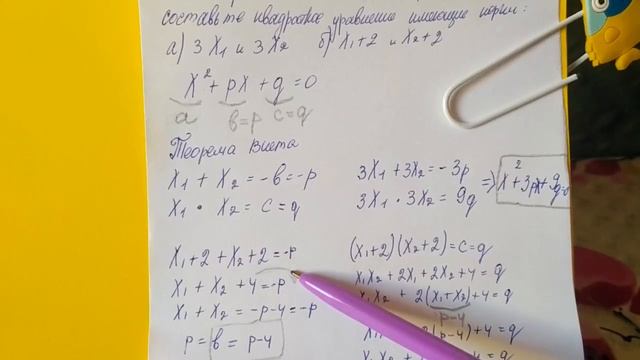 составьте квадратное уравнение имеющие корни:
а) 3x₁ и 3x₂ б) x₁+2 и x₂+2
x² + px + q = 0
a в=p c=q
Теорема Виета
x₁ + x₂ = -в = -p
x₁ · x₂ = c = q
3x₁ + 3x₂ = -3p
3x₁ · 3x₂ = 9q
=> x² + 3px + 9q=0
x₁ + 2 + x₂ + 2 = -p
x₁ + x₂ + 4 = -p
x₁ + x₂ = -p-4 = -p
p = в = p-4
(x₁+2)(x₂+2) = c = q
x₁x₂ + 2x₁ + 2x₂ + 4 = q
x₁x₂ + 2(x₁+x₂)+4 = q
p-4
(p-4)+4 = q